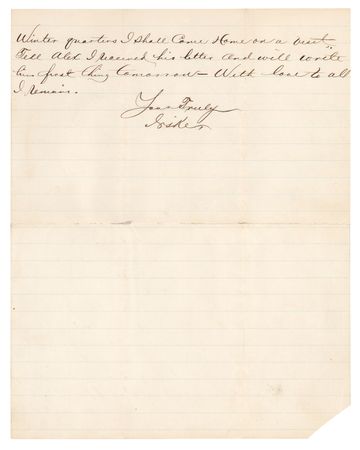 Winter quarters I Shall Come Home on a visit"
Tell Alex I received his letter and will write
him first thing tomorrow – With love to all
I remain.
Yours Truly